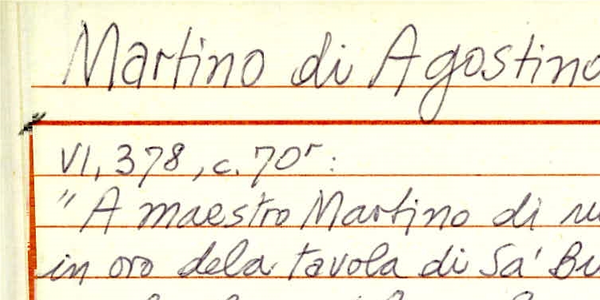 Martino di Agostino
VI, 378, c. 70r:
"A maestro Martino di
in oro dela tavola di Sa'